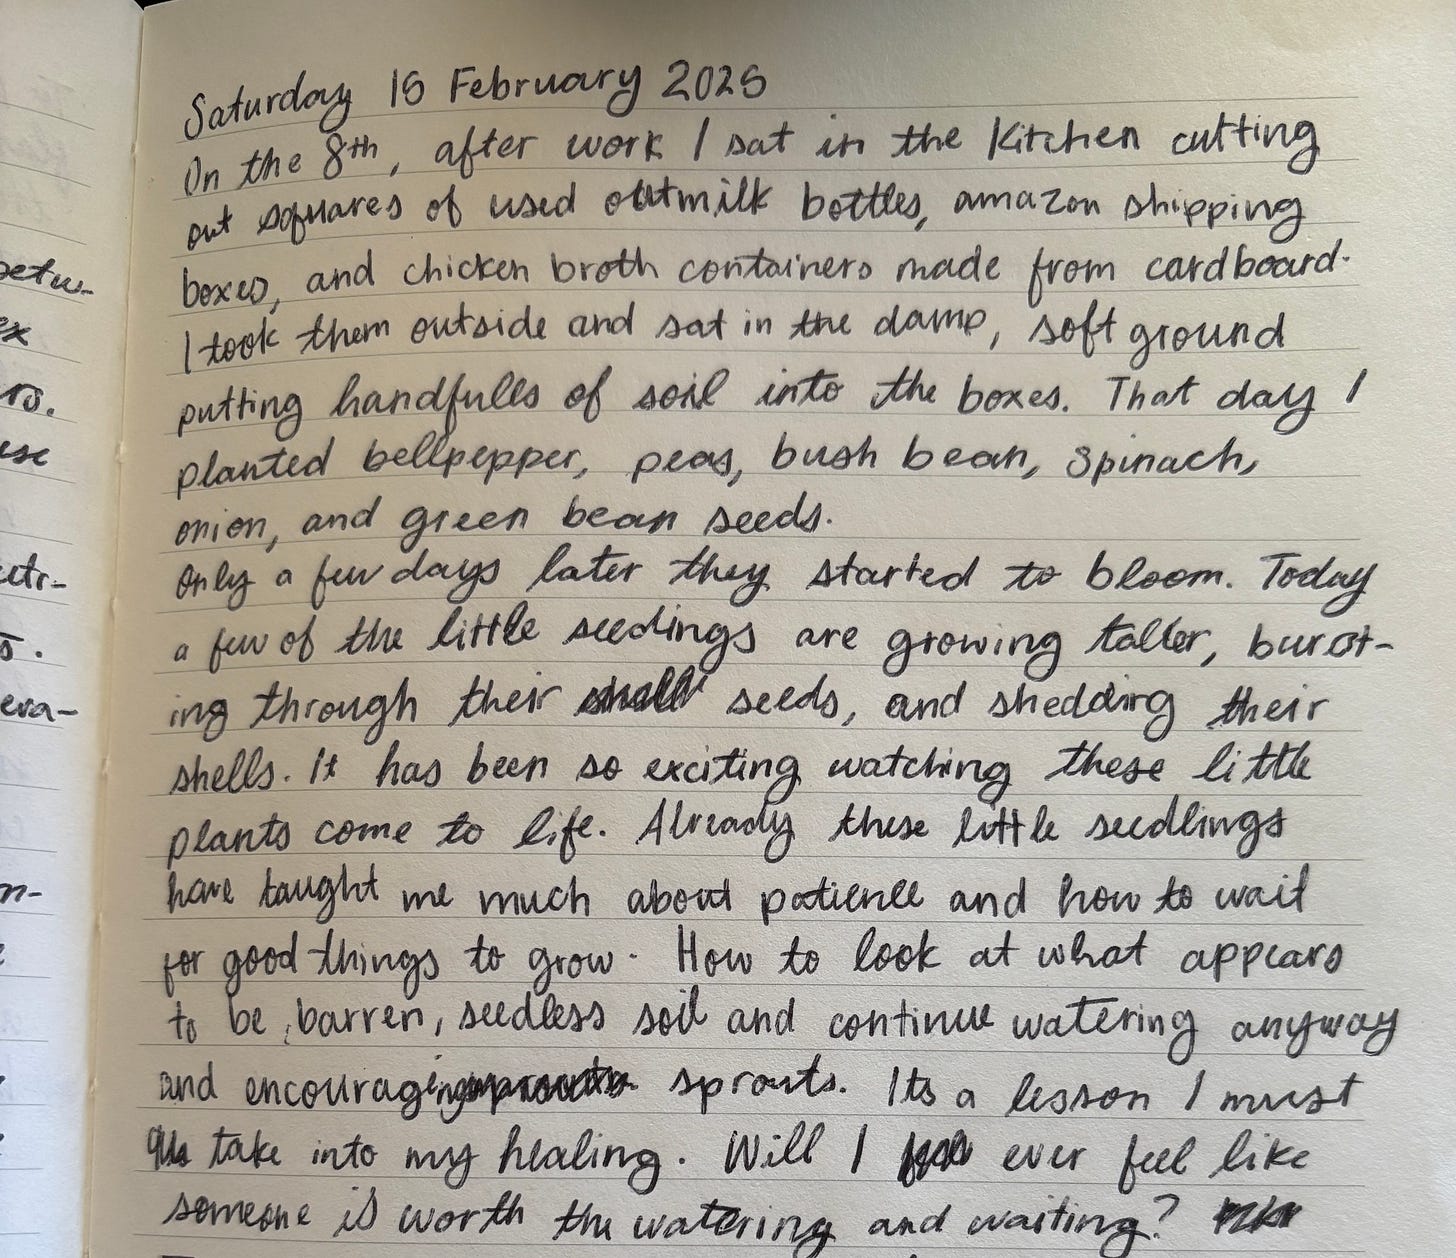 Saturday 15 February 2025
On the 8th, after work I sat in the Kitchen cutting
out squares of used oatmilk bottles, amazon shipping
boxes, and chicken broth containers made from cardboard.
I took them outside and sat in the damp, soft ground
putting handfulls of soil into the boxes. That day I
planted bellpepper, peas, bush bean, spinach,
onion, and green bean seeds.
Only a few days later they started to bloom. Today
a few of the little seedings are growing taller, burst-
ing through their seeds, and shedding their
shells. It has been so exciting watching these little
plants come to life. Already these little seedlings
have taught me much about patience and how to wait
for good things to grow. How to look at what appears
to be barren, seedless soil and continue watering anyway
and encouraging sprouts. Its a lesson I must
take into my healing. Will I ever feel like
someone is worth the watering and waiting?
ex
rs.
use